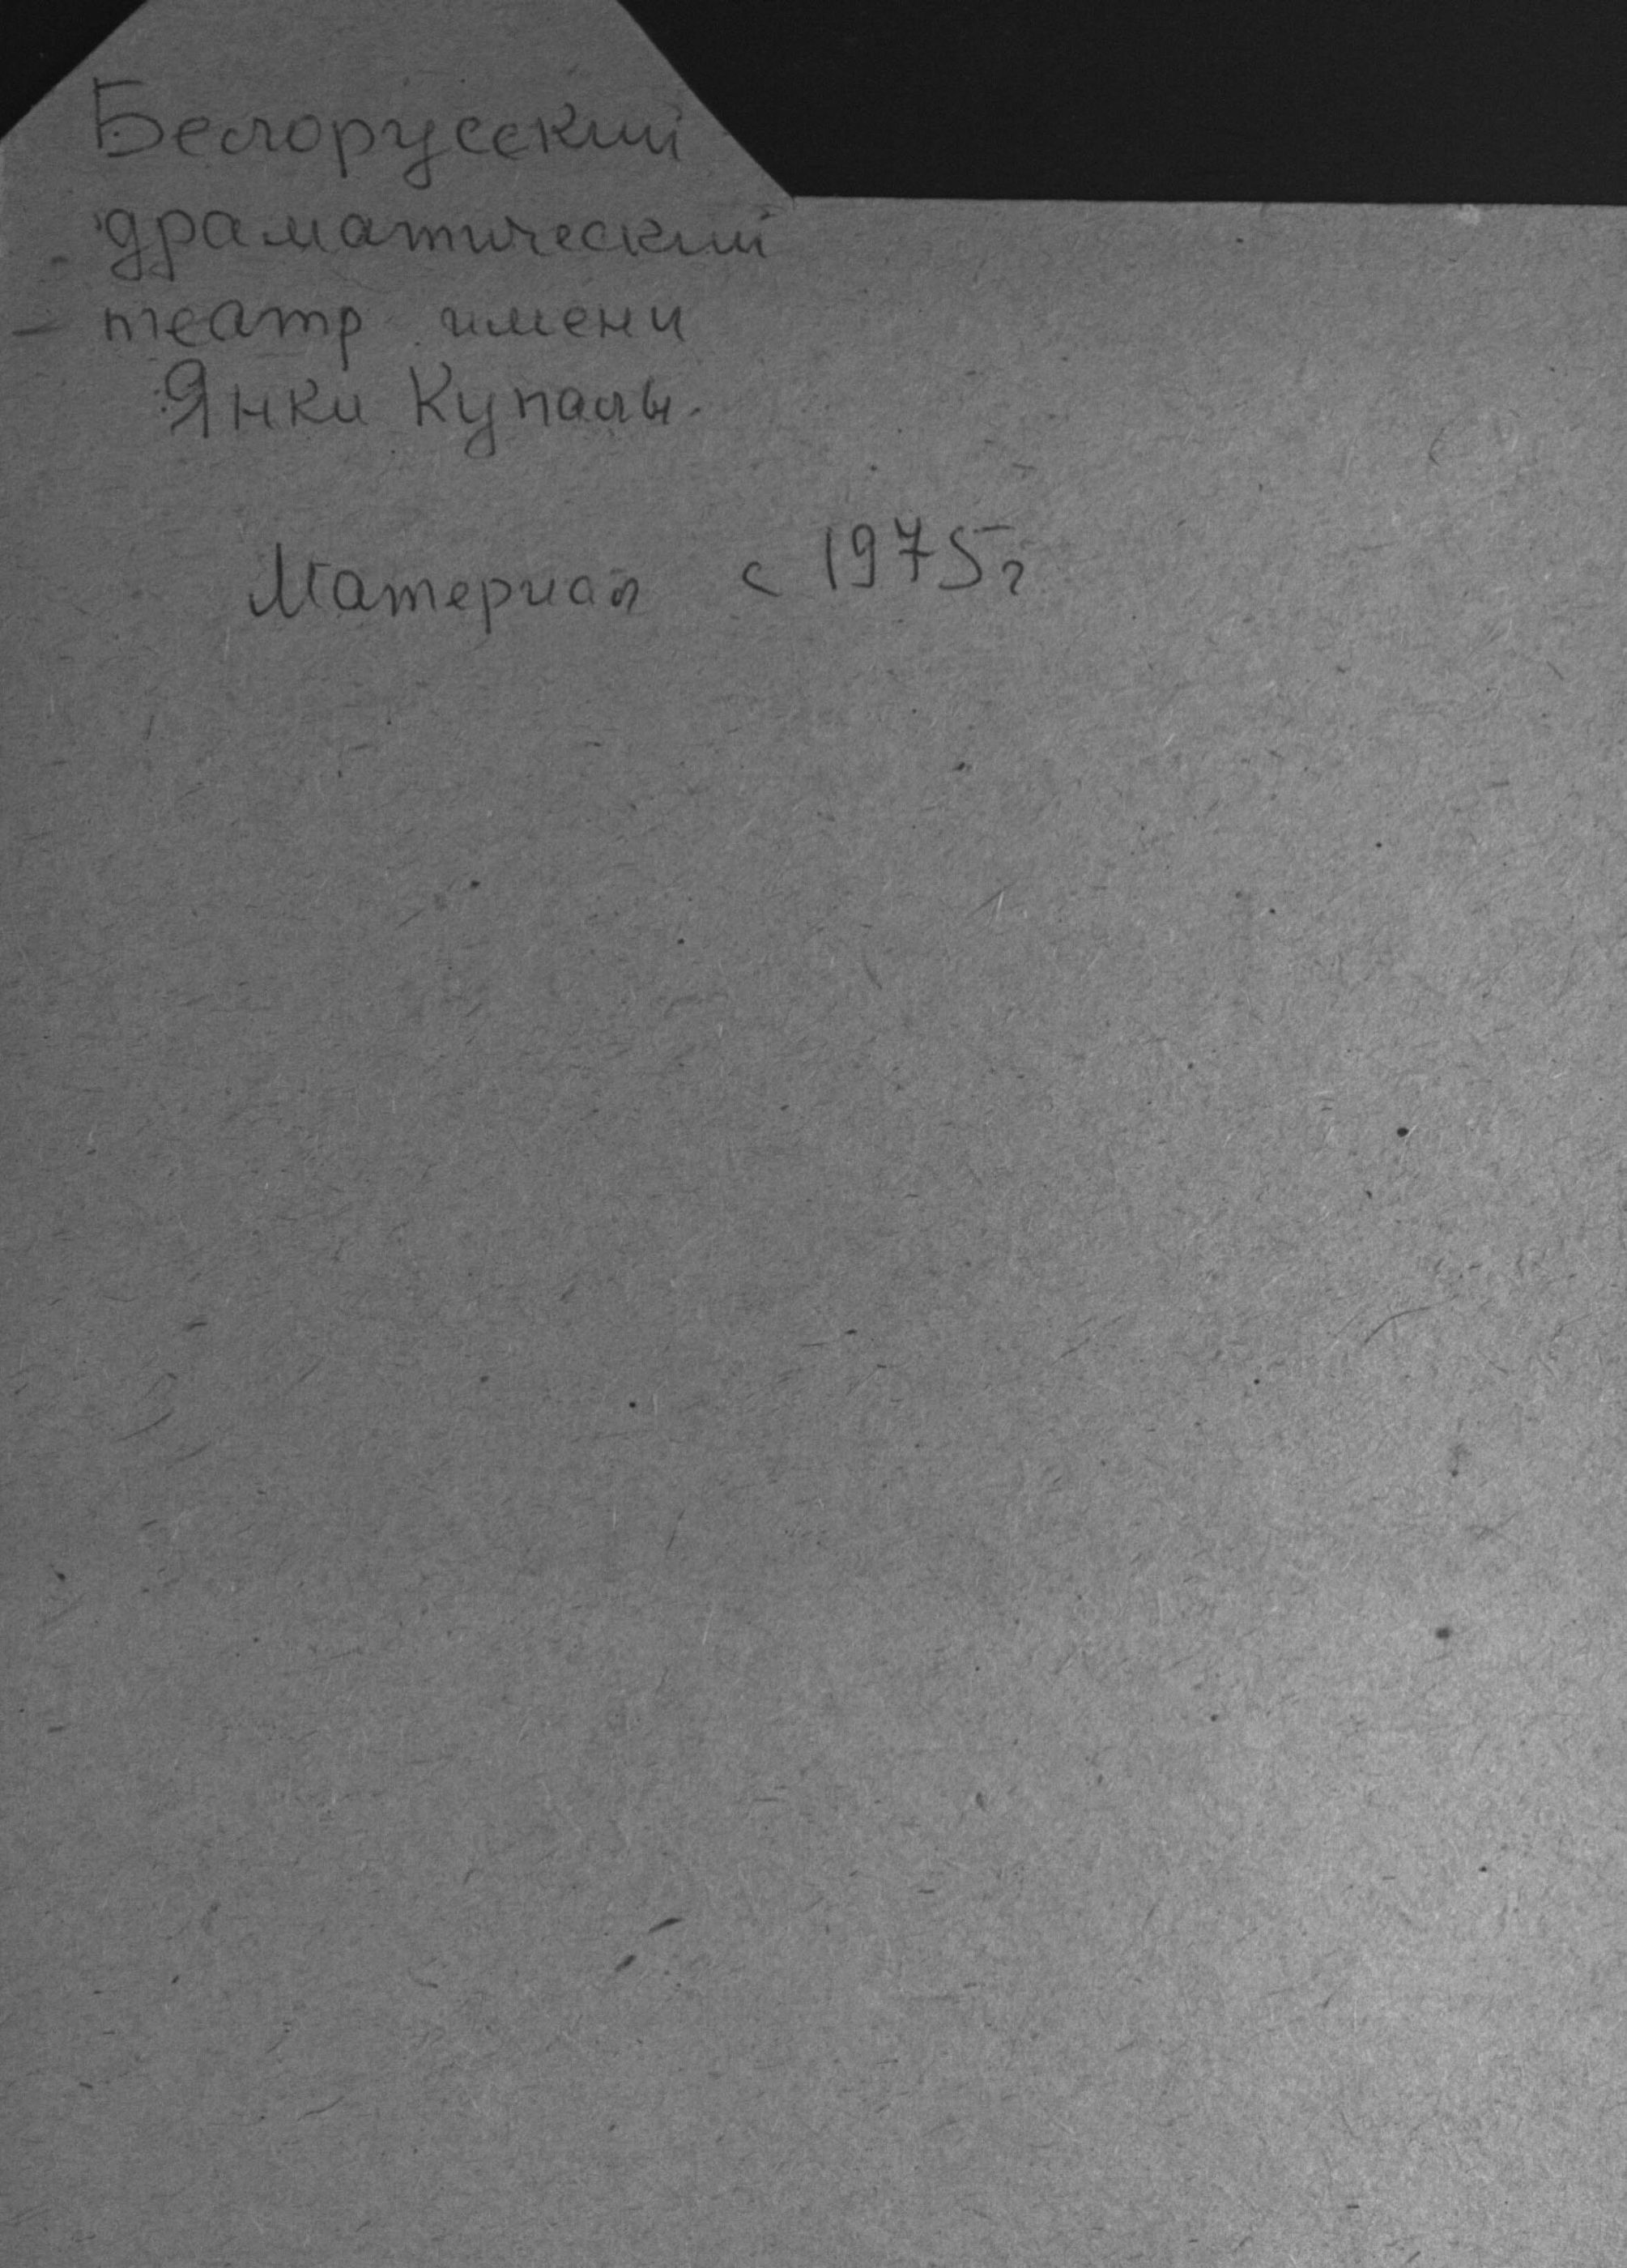 Белорусский
драматический
театр имени
Янки Купалы.
Материал с 1975г